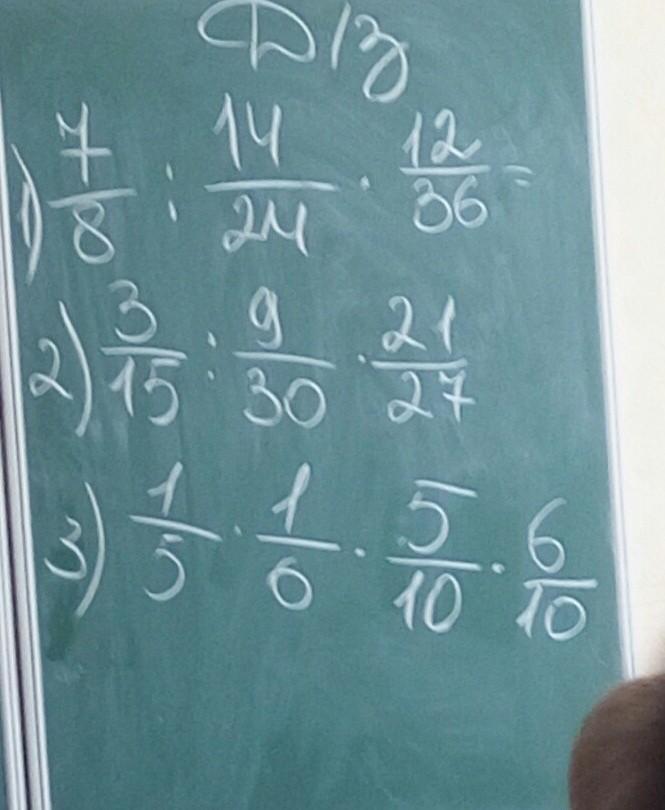 Д/з
1) 7/8 : 14/24 · 12/36 =
2) 3/15 : 9/30 · 21/27
3) 1/5 · 1/6 · 5/10 · 6/10